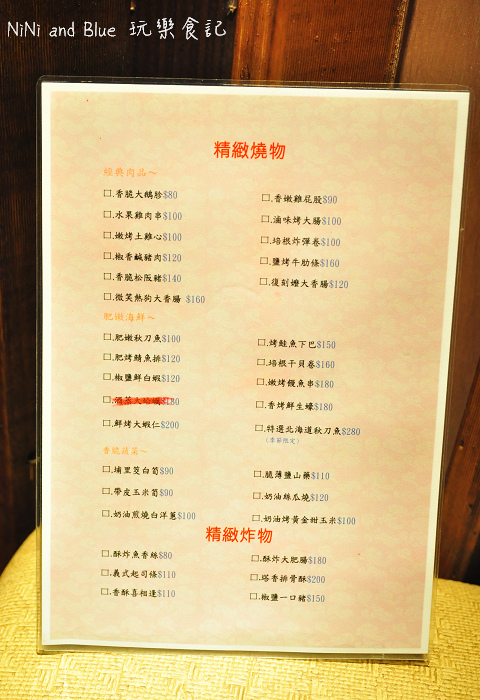 NiNi and Blue 玩樂食記
精緻燒物
經典肉品～
□.香脆大鵝胗$80
□.水果雞肉串$100
□.嫩烤土雞心$100
□.椒香鹹豬肉$120
□.香脆松阪豬$140
□.微笑熱狗大香腸 $160
□.香嫩雞屁股$90
□.滷味烤大腸$100
□.培根炸彈卷$100
□.鹽烤牛肋條$160
□.復刻嬤大香腸$120
肥嫩海鮮～
□.肥嫩秋刀魚$100
□.肥烤鯖魚排$120
□.椒鹽鮮白蝦$120
□.酒蒸大蛤蠣$180
□.鮮烤大蝦仁$200
□.烤鮭魚下巴$150
□.培根干貝卷$160
□.嫩烤鰻魚串$180
□.香烤鮮生蠔$180
□.特選北海道秋刀魚$280
(季節限定)
香脆蔬菜～
□.埔里筊白筍$90
□.帶皮玉米筍$90
□.奶油煎燒白洋蔥$100
□.脆薄鹽山藥$110
□.奶油絲瓜燒$120
□.奶油烤黃金甜玉米$100
精緻炸物
□.酥炸魚香絲$80
□.義式起司條$110
□.香酥喜相逢$110
□.酥炸大肥腸$180
□.塔香排骨酥$200
□.椒鹽一口豬$150